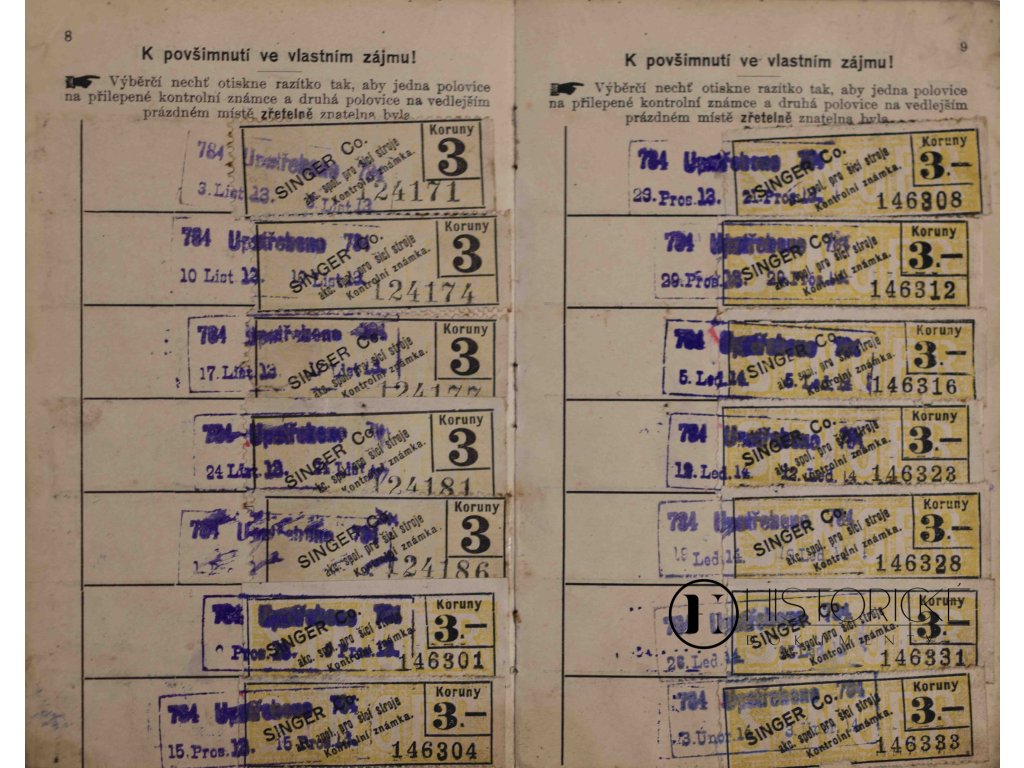 8
K povšimnutí ve vlastním zájmu!
Výběrčí nechť otiskne razítko tak, aby jedna polovice
na přilepené kontrolní známce a druhá polovice na vedlejším
prázdném místě zřetelně znatelna byla.
784 Upotřebeno 784
3. List 13.
SINGER Co.
akc. spol. pro šicí stroje
Kontrolní známka.
Koruny
3
24171
784 Upotřebeno 784
10 List 13. 10 List 13.
SINGER Co.
akc. spol. pro šicí stroje
Kontrolní známka.
Koruny
3
124174
784 Upotřebeno 784
17. List 13
SINGER Co.
akc. spol. pro šicí stroje
Kontrolní známka.
Koruny
3
124177
784 Upotřebeno
24 List 13. 24 List
SINGER Co.
akc. spol. pro šicí stroje
Kontrolní známka.
Koruny
3
124181
784
SINGER Co.
akc. spol. pro šicí stroje
Kontrolní známka.
Koruny
3
124186
784 Upotřebeno 784
Pros. 13.
SINGER Co.
akc. spol. pro šicí stroje
Kontrolní známka.
Koruny
3.—
146301
784 Upotřebeno 784
15. Pros. 13. 15 Pros.
SINGER Co.
akc. spol. pro šicí stroje
Kontrolní známka.
Koruny
3.—
146304
9
K povšimnutí ve vlastním zájmu!
Výběrčí nechť otiskne razítko tak, aby jedna polovice
na přilepené kontrolní známce a druhá polovice na vedlejším
prázdném místě zřetelně znatelna byla.
784 Upotřebeno 784
Pros. 13. Pros. 13.
SINGER Co.
akc. spol. pro šicí stroje
Kontrolní známka.
Koruny
3.—
146308
784 Upotřebeno 784
29. Pros. 13 29. Pros. 13
SINGER Co.
akc. spol. pro šicí stroje
Kontrolní známka.
Koruny
3.—
146312
784 Upotřebeno 784
5. Led. 14 5. Led. 14
SINGER Co.
akc. spol. pro šicí stroje
Kontrolní známka.
Koruny
3.—
146316
784 Upotřebeno 784
12. Led. 14 12. Led. 14
SINGER Co.
akc. spol. pro šicí stroje
Kontrolní známka.
Koruny
3.—
146323
784 Upotřebeno 784
19. Led. 14
SINGER Co.
akc. spol. pro šicí stroje
Kontrolní známka.
Koruny
3.—
146328
784 Upotřebeno 784
26. Led. 14
SINGER Co.
akc. spol. pro šicí stroje
Kontrolní známka.
Koruny
3.—
146331
HISTORICKÉ
784 Upotřebeno 784
3. Únor 14
SINGER Co.
akc. spol. pro šicí stroje
Kontrolní známka.
Koruny
3.—
146333